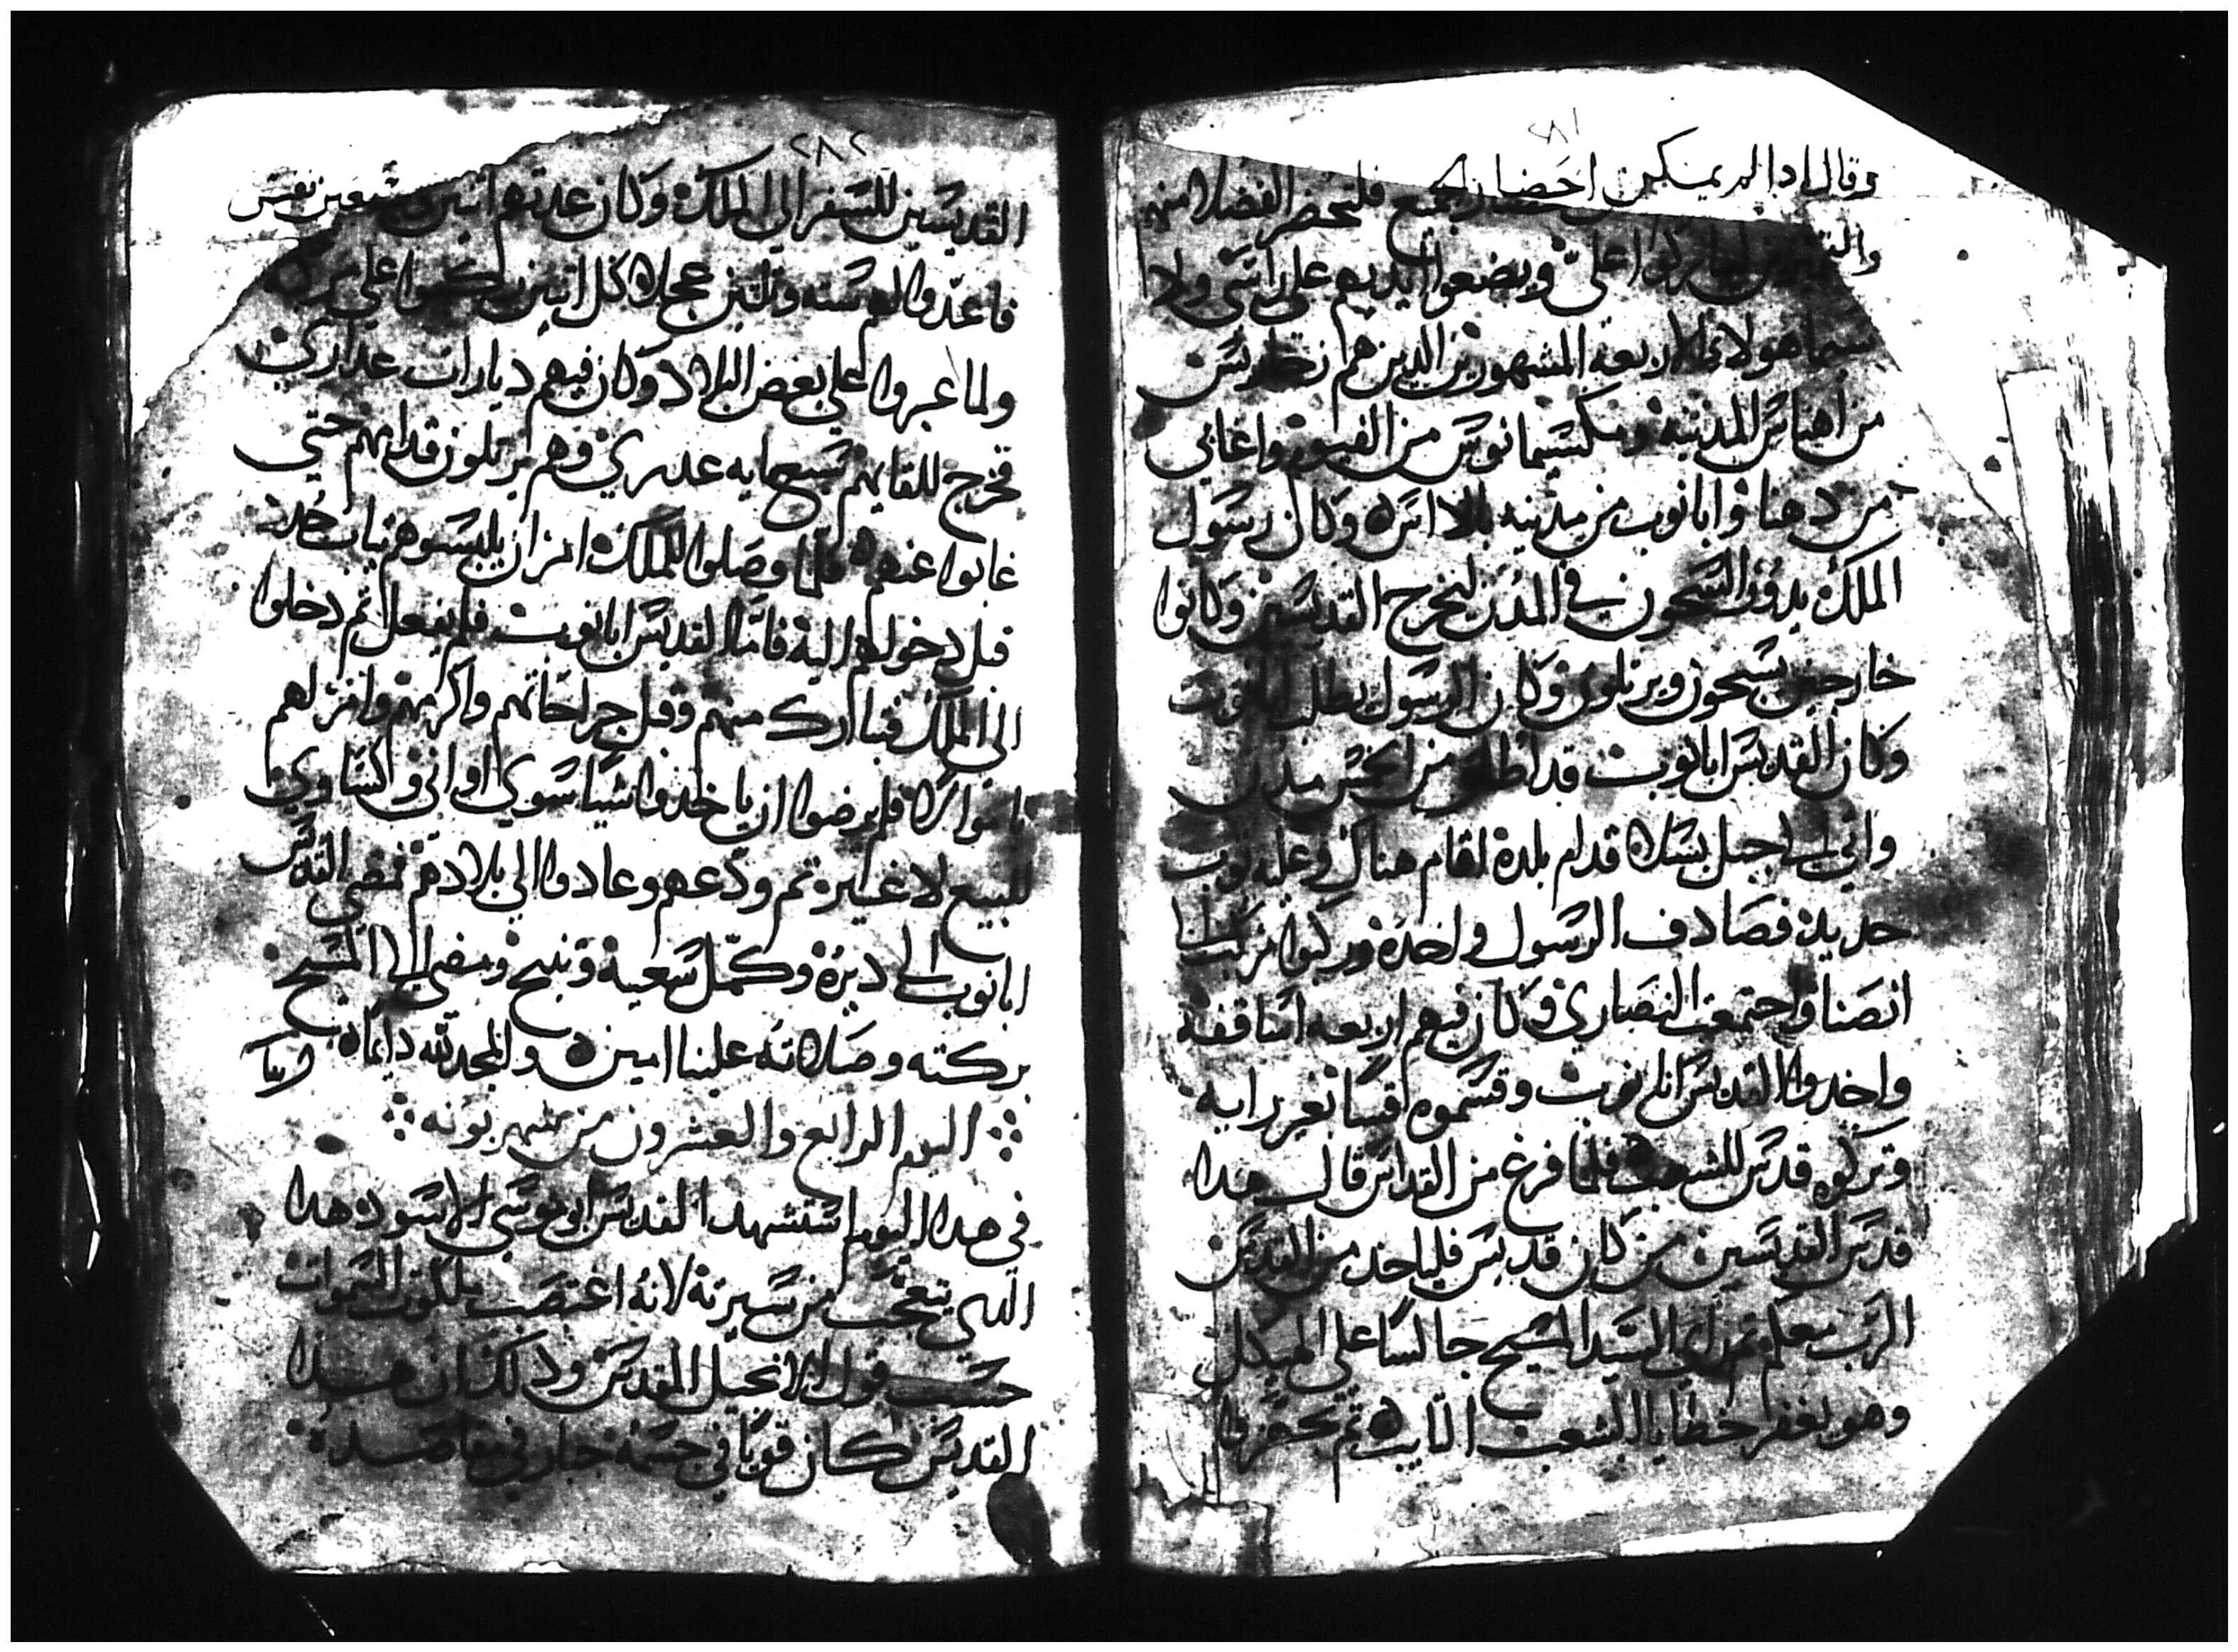 ٢٨١
وقال ادا لم يمكن احضار الجميع فلتحضر الفضلا منهم
والقديسين ليباركوا علىّ ويضعوا ايديهم على راسى ولا
سيما هولاى الاربعه المشهورين الدين هم
من اهناس المدينه ومكسيمانوس من الفيوم واغابى
من دهنا وابانوب من مدينه بالاوس وكان رسول
الملك يدور السجون فى المدن ليخرج القديسين وكانوا
خارجين يسبحون ويرتلون وكان الرسول يطلب ابانوب
وكان القديس ابانوب قد اطلق من الخمس مدن
واتى الى جبل بشلا قدام بلده اقام هناك وعليه توب
حديد فصادف الرسول واخده وركبوا مركب الى
انصنا واجتمعت النصارى وكان فيهم اربعه اساقفه
واخدوا القديس ابانوب وقسموه قسا بغير رايه
وتركوه قدس للشعب فلما فرغ من القداس قال هدا
قدس القديسين من كان قديس فلياخد من القدس
الرب معكم ثم راى السيد المسيح جالسا على الهيكل
وهو يغفر خطايا الشعب التايب ثم تحضروا
٢٨٢
القديسين للسفر الى الملك وكان عدتهم اتنين وسبعين نفس
فاعدّوا لهم سته وتلتين عجله كل اتنين يركبوا على مركبه
ولما عبروا على بعض البلاد وكان فيهم ديارات عدارى
فخرج للقايهم سبعمايه عدرى وهم يرتلون قدامهم حتى
غابوا عنهم فلما وصلوا للملك امر ان يلبسوهم تياب جدد
قبل دخولهم اليه فامّا القديس ابانوب فلم يفعل ثم دخلوا
الى الملك فتبارك منهم وقبل جراحاتهم واكرمهم وامر لهم
باموال فلم يرضوا ان ياخدوا شيا سوى اوانى وكساوى
للبيع لا غير ثم ودّعهم وعادوا الى بلادهم فمضى القديس
ابانوب الى ديره وكمّل سعيه وتنيح ومضى الى المسيح
بركته وصلاته علينا امين والمجد لله دايما
اليوم الرابع والعشرون من شهر بونه
فى هدا اليوم استشهد القديس ابو موسى الاسود هدا
الدى يتعجب من سيرته لانه اغتصب ملكوت السموات
حسب قول الانجيل المقدس ودلك ان هدا
القديس كان قويا فى جسمه جبار فى مقاصده